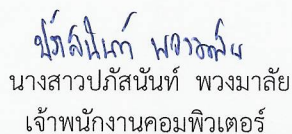 ปภัสนันท์ พวงมาลัย
นางสาวปภัสนันท์ พวงมาลัย
เจ้าพนักงานคอมพิวเตอร์